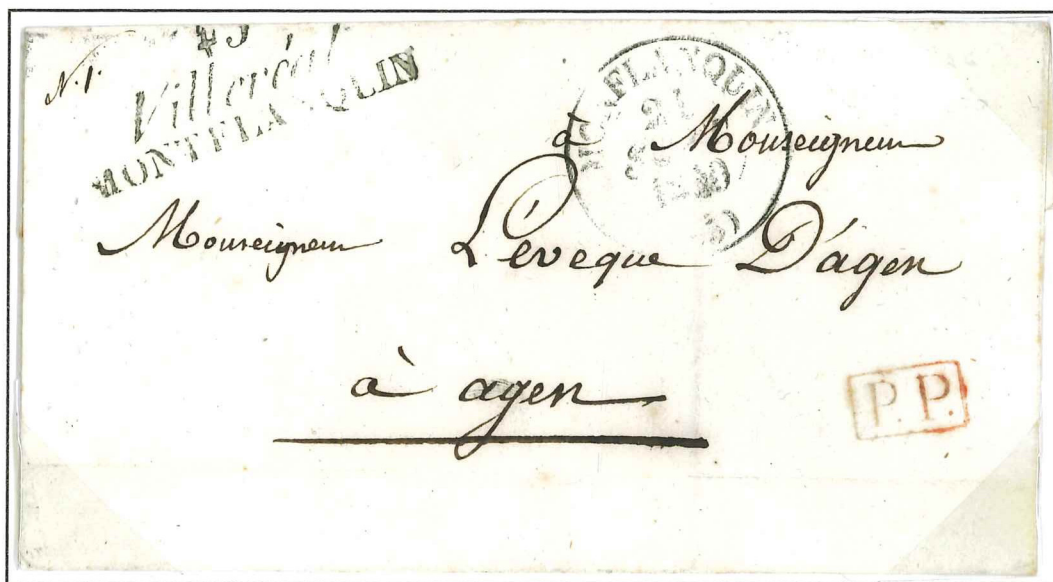 N. 1.
Villeréal
MONTFLANQUIN
MONTFLANQUIN
à Monseigneur
Monseigneur Lévêque D'agen
à agen
P. P.